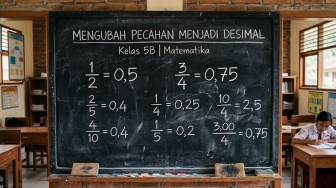 MENGUBAH PECAHAN MENJADI DESIMAL
Kelas 5B | Matematika
1/2 = 0,5
3/4 = 0,75
2/5 = 0,4
1/4 = 0,25
10/4 = 2,5
4/10 = 0,4
1/5 = 0,2
3,00/4 = 0,75